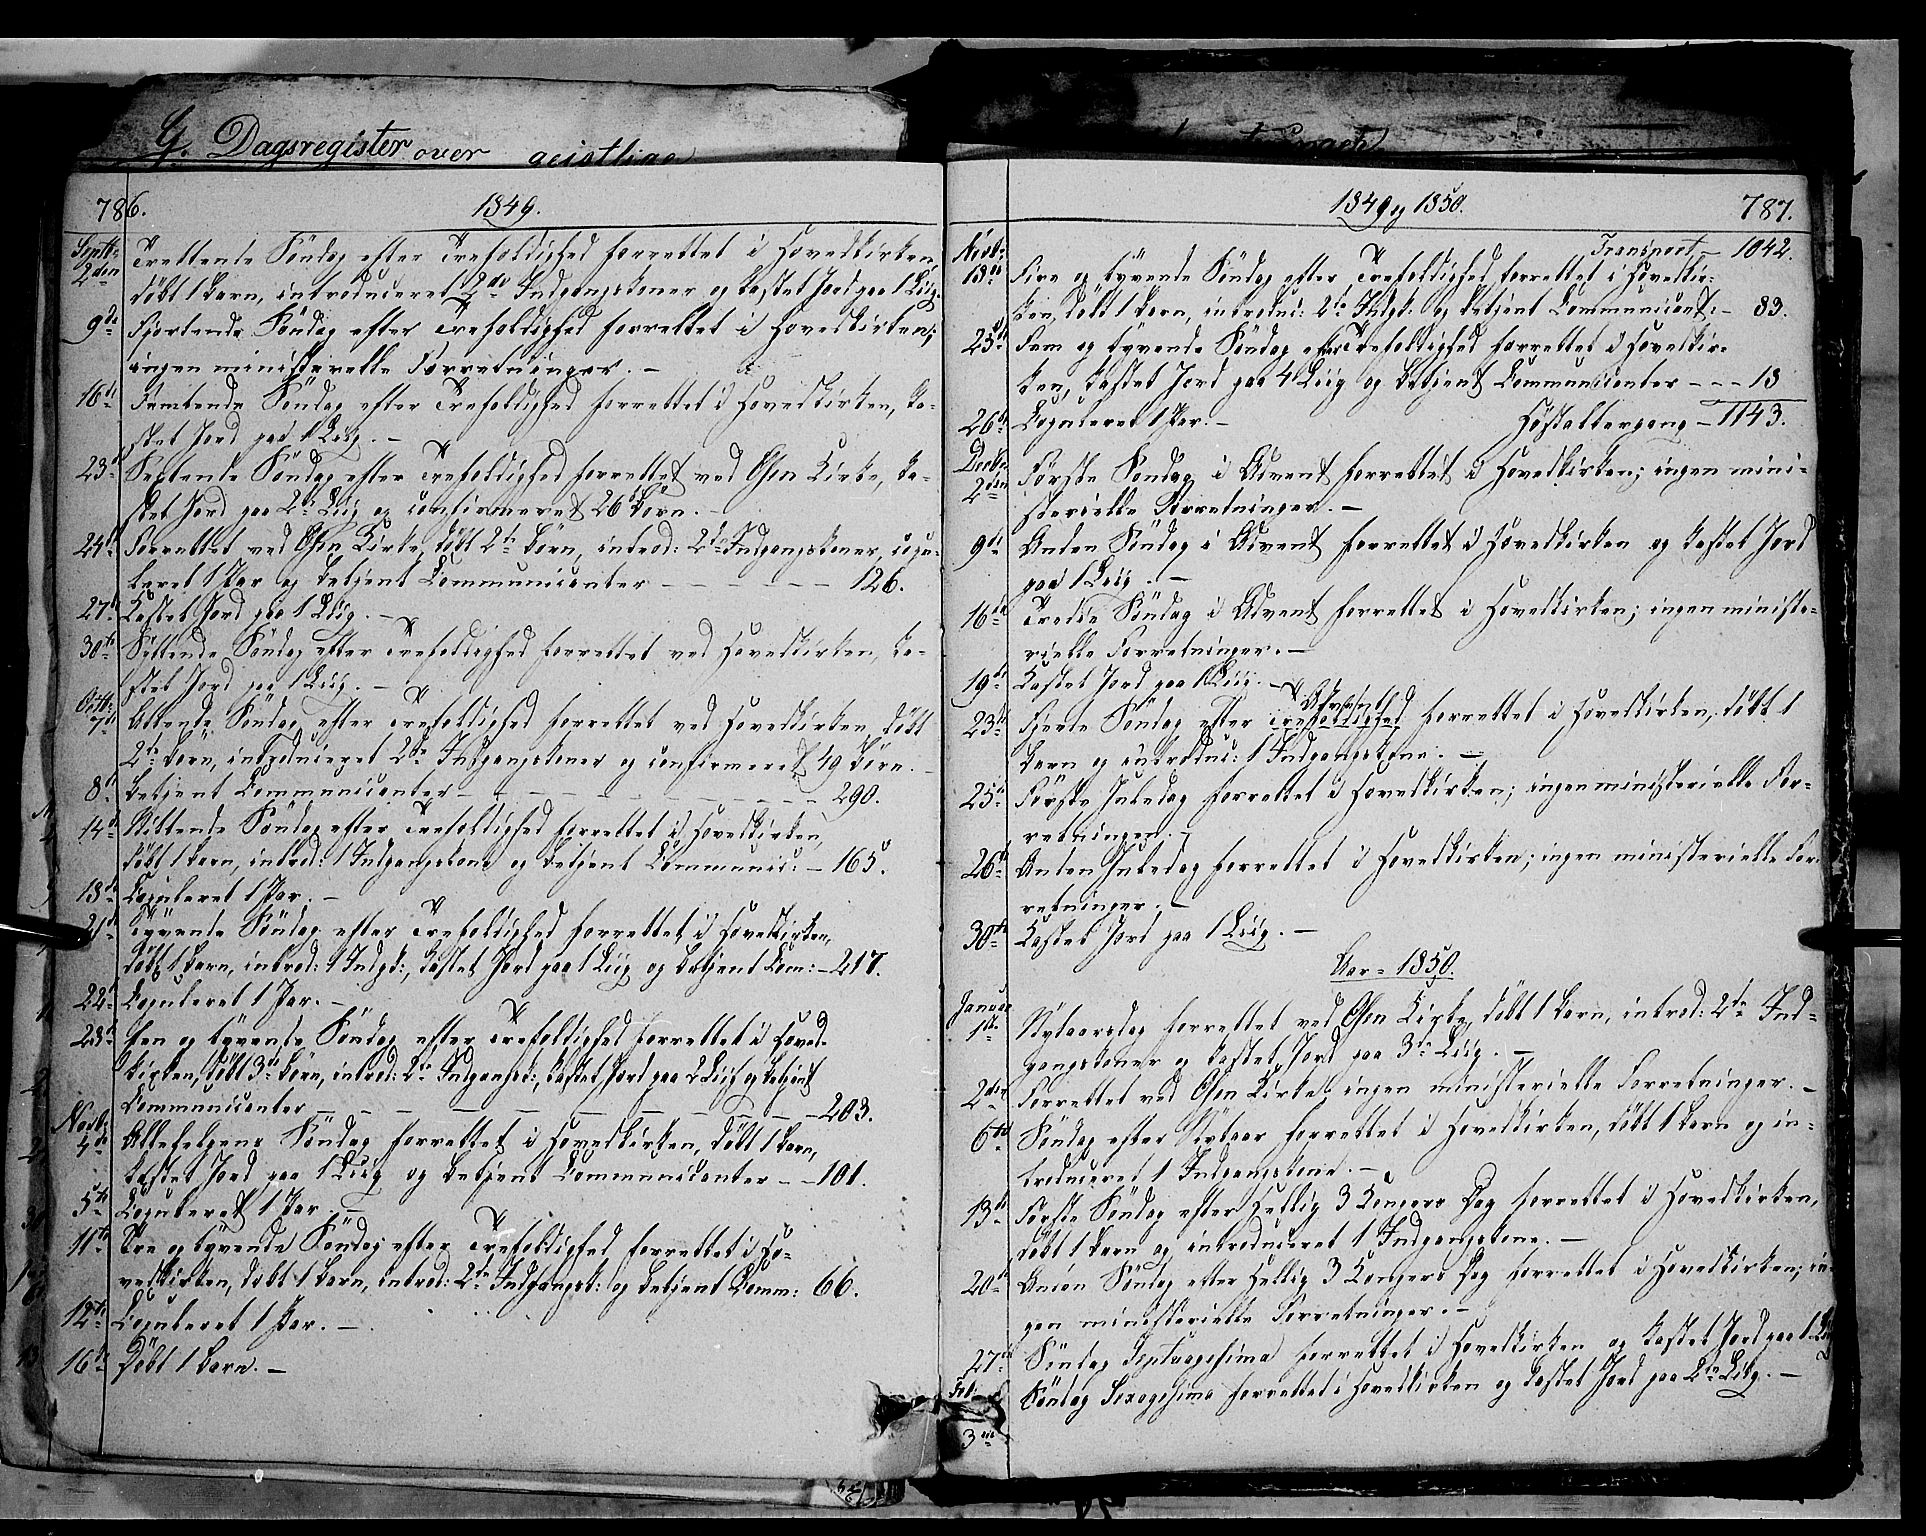 G. Dagsregister over geistlige
786.
1849.
Septbr: Trettende Söndag efter Trefoldighed forrettet i Hovedkirken,
2den döbt 1 barn, introduceret 2de Indgangskoner og kastet Jord paa 1 Liig.
9de Fjortende Söndag efter Trefoldighed forrettet i Hovedkirken;
ingen ministerielle Forretninger. —
16de Femtende Söndag efter Trefoldighed forrettet i Hovedkirken, ka-
stet Jord paa 1 Liig. —
23de Sextende Söndag efter Trefoldighed forrettet ved Osen Kirke, ka-
stet Jord paa 2de Liig og confirmeret 26 Börn. —
24de Forrettet ved Osen Kirke, döbt 2de Börn, introd: 2de Indgangskoner, copu-
leret 1 Par og betjent Communicanter — — — — — — 126.
27de Kastet Jord paa 1 Liig. —
30te Söttende Söndag efter Trefoldighed forrettet ved Hovedkirken, ka-
stet Jord paa 1 Liig. —
Octbr: 7de Attende Söndag efter Trefoldighed forrettet ved Hovedkirken, döbt
2de börn, introduceret 2de Indgangskoner og confirmeret 49 Börn. —
8de Betjent Communicanter — — — — — — — — — 290.
14de Nittende Söndag efter Trefoldighed forrettet i Hovedkirken,
döbt 1 barn, introd: 1 Indgangskone og betjent Communic: — 165.
18de Copuleret 1 Par. —
21de Tyvende Söndag efter Trefoldighed forrettet i Hovedkirken,
döbt 1 barn, introd: 1 Indgk:, kastet Jord paa 1 Liig og betjent Com: — 217.
22de Copuleret 1 Par. —
28de Een og tyvende Söndag efter Trefoldighed forrettet i Hoved-
kirken, döbt 3de börn, introd: 2de Indgangsk:, kastet Jord paa 2 Liig og betjent
Communicanter — — — — — — — — — — — 203.
Novbr: 4de Allehelgens Söndag forrettet i Hovedkirken, döbt 1 barn,
kastet Jord paa 1 Liig og betjent Communicanter — — 101.
5te Copuleret 1 Par. —
11te Tre og tyvende Söndag efter Trefoldighed forrettet i Ho-
vedkirken, döbt 1 barn, introd: 2de Indgangsk: og betjent Comm: 66.
12te Copuleret 1 Par. —
16de Döbt 1 barn. —
1849 og 1850.
787.
Transport — 1042.
18de Fire og tyvende Söndag efter Trefoldighed forrettet i Hovedkir-
ken, döbt 1 barn, introdu: 2de Indgk: og betjent Communicant: — 83.
25de Fem og tyvende Söndag efter Trefoldighed forrettet i Hovedkir-
ken, kastet Jord paa 4 Liig og betjent Communicanter — — — 18
26de Copuleret 1 Par. — Höstaltergang — 1143.
Decbr: 2den Förste Söndag i Advent forrettet i Hovedkirken; ingen mini-
sterielle Forretninger. —
9de Anden Söndag i Advent forrettet i Hovedkirken og kastet Jord
paa 1 Liig. —
16de Tredie Söndag i Advent forrettet i Hovedkirken; ingen ministe-
rielle Forretninger. —
19de Kastet Jord paa 1 Liig. —
Advent
23de Fjerde Söndag efter Trefoldighed forrettet i Hovedkirken, döbt 1
barn og introduc: 1 Indgangskone. —
25de Förste Juledag forrettet i Hovedkirken; ingen ministerielle For-
retninger. —
26de Anden Juledag forrettet i Hovedkirken; ingen ministerielle For-
retninger. —
30te Kastet Jord paa 1 Liig. —
Aar = 1850.
Januar 1ste Nytaarsdag forrettet ved Osen Kirke, döbt 1 barn, introd: 2de Ind-
gangskoner og kastet Jord paa 3de Liig. —
2den Forrettet ved Osen Kirke, ingen ministerielle Forretninger. —
6te Söndag efter Nytaar forrettet i Hovedkirken, döbt 1 barn og in-
troduceret 1 Indgangskone. —
13de Förste Söndag efter Hellig 3 Kongers Dag forrettet i Hovedkirken,
döbt 1 barn og introduceret 1 Indgangskone. —
20de Anden Söndag efter Hellig 3 Kongers Dag forrettet i Hovedkirken; in-
gen ministerielle Forretninger. —
27de Söndag Septuagesima forrettet i Hovedkirken og kastet Jord paa 1 Liig
Feb: 3die Söndag Sexagesima forrettet i Hovedkirken og kastet Jord paa 2de Liig. —